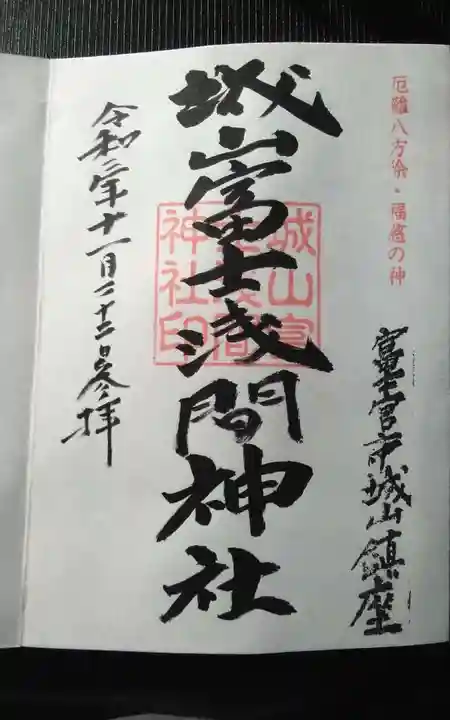 厄難八方除・福寿の神
富士宮市城山鎮座
城山富士浅間神社
城山富士浅間神社印
令和二年十一月二十二日参拝